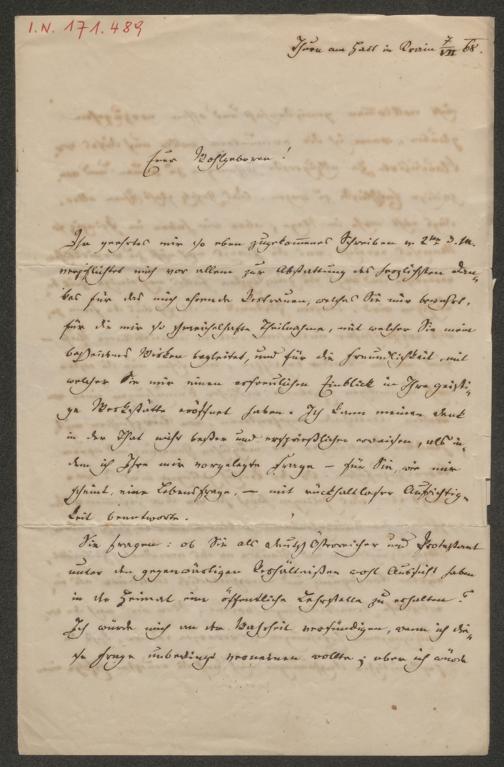 I.N. 171.489
Thurn am Hart in Krain 7/VII 68.
Euer Wohlgeboren!
Ihr geehrtes mir so eben zugekommenes Schreiben v. 2ten d. M.
verpflichtet mich vor allem zur Abstattung des herzlichsten Dan-
kes für das mich ehrende Vertrauen, welches Sie mir bewahrt,
für die mir so schmeichelhafte Theilnahme, mit welcher Sie mein
bescheidenes Wirken begleitet, und für die Freundlichkeit, mit
welcher Sie mir einen erfreulichen Einblick in Ihre geisti-
ge Werkstätte eröffnet haben. Ich kann meinen Dank
in der That nicht besser und ersprießlicher erweisen, als in-
dem ich Ihre mir vorgelegte Frage – für Sie, wie mir
scheint, eine Lebensfrage, – mit rückhaltloser Aufrichtig-
keit beantworte.
Sie fragen: ob Sie als deutsch Österreicher und Protestant
unter den gegenwärtigen Verhältnißen wohl Aussicht haben
in der Heimat eine öffentliche Lehrstelle zu erhalten?
Ich würde mich an der Wahrheit versündigen, wenn ich die-
se Frage unbedingt verneinen wollte; aber ich würde